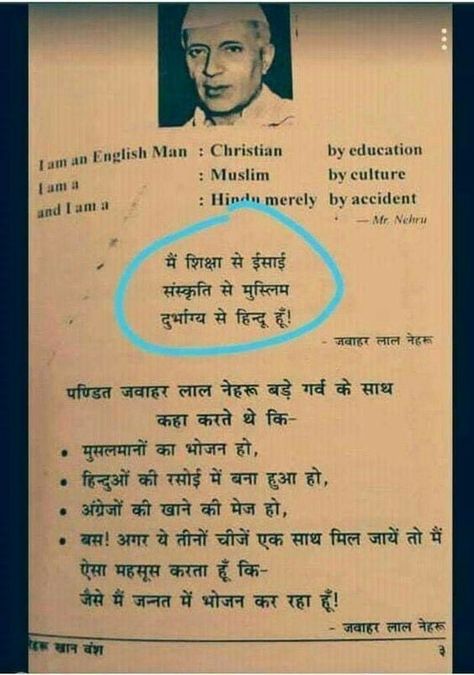 I am an English Man : Christian by education
I am a : Muslim by culture
and I am a : Hindu merely by accident
— Mr. Nehru
मैं शिक्षा से ईसाई
संस्कृति से मुस्लिम
दुर्भाग्य से हिन्दू हूँ!
- जवाहर लाल नेहरू
पण्डित जवाहर लाल नेहरू बड़े गर्व के साथ
कहा करते थे कि-
• मुसलमानों का भोजन हो,
• हिन्दुओं की रसोई में बना हुआ हो,
• अंग्रेजों की खाने की मेज हो,
• बस! अगर ये तीनों चीजें एक साथ मिल जायें तो मैं
ऐसा महसूस करता हूँ कि-
जैसे मैं जन्नत में भोजन कर रहा हूँ!
- जवाहर लाल नेहरू
खान वंश ३